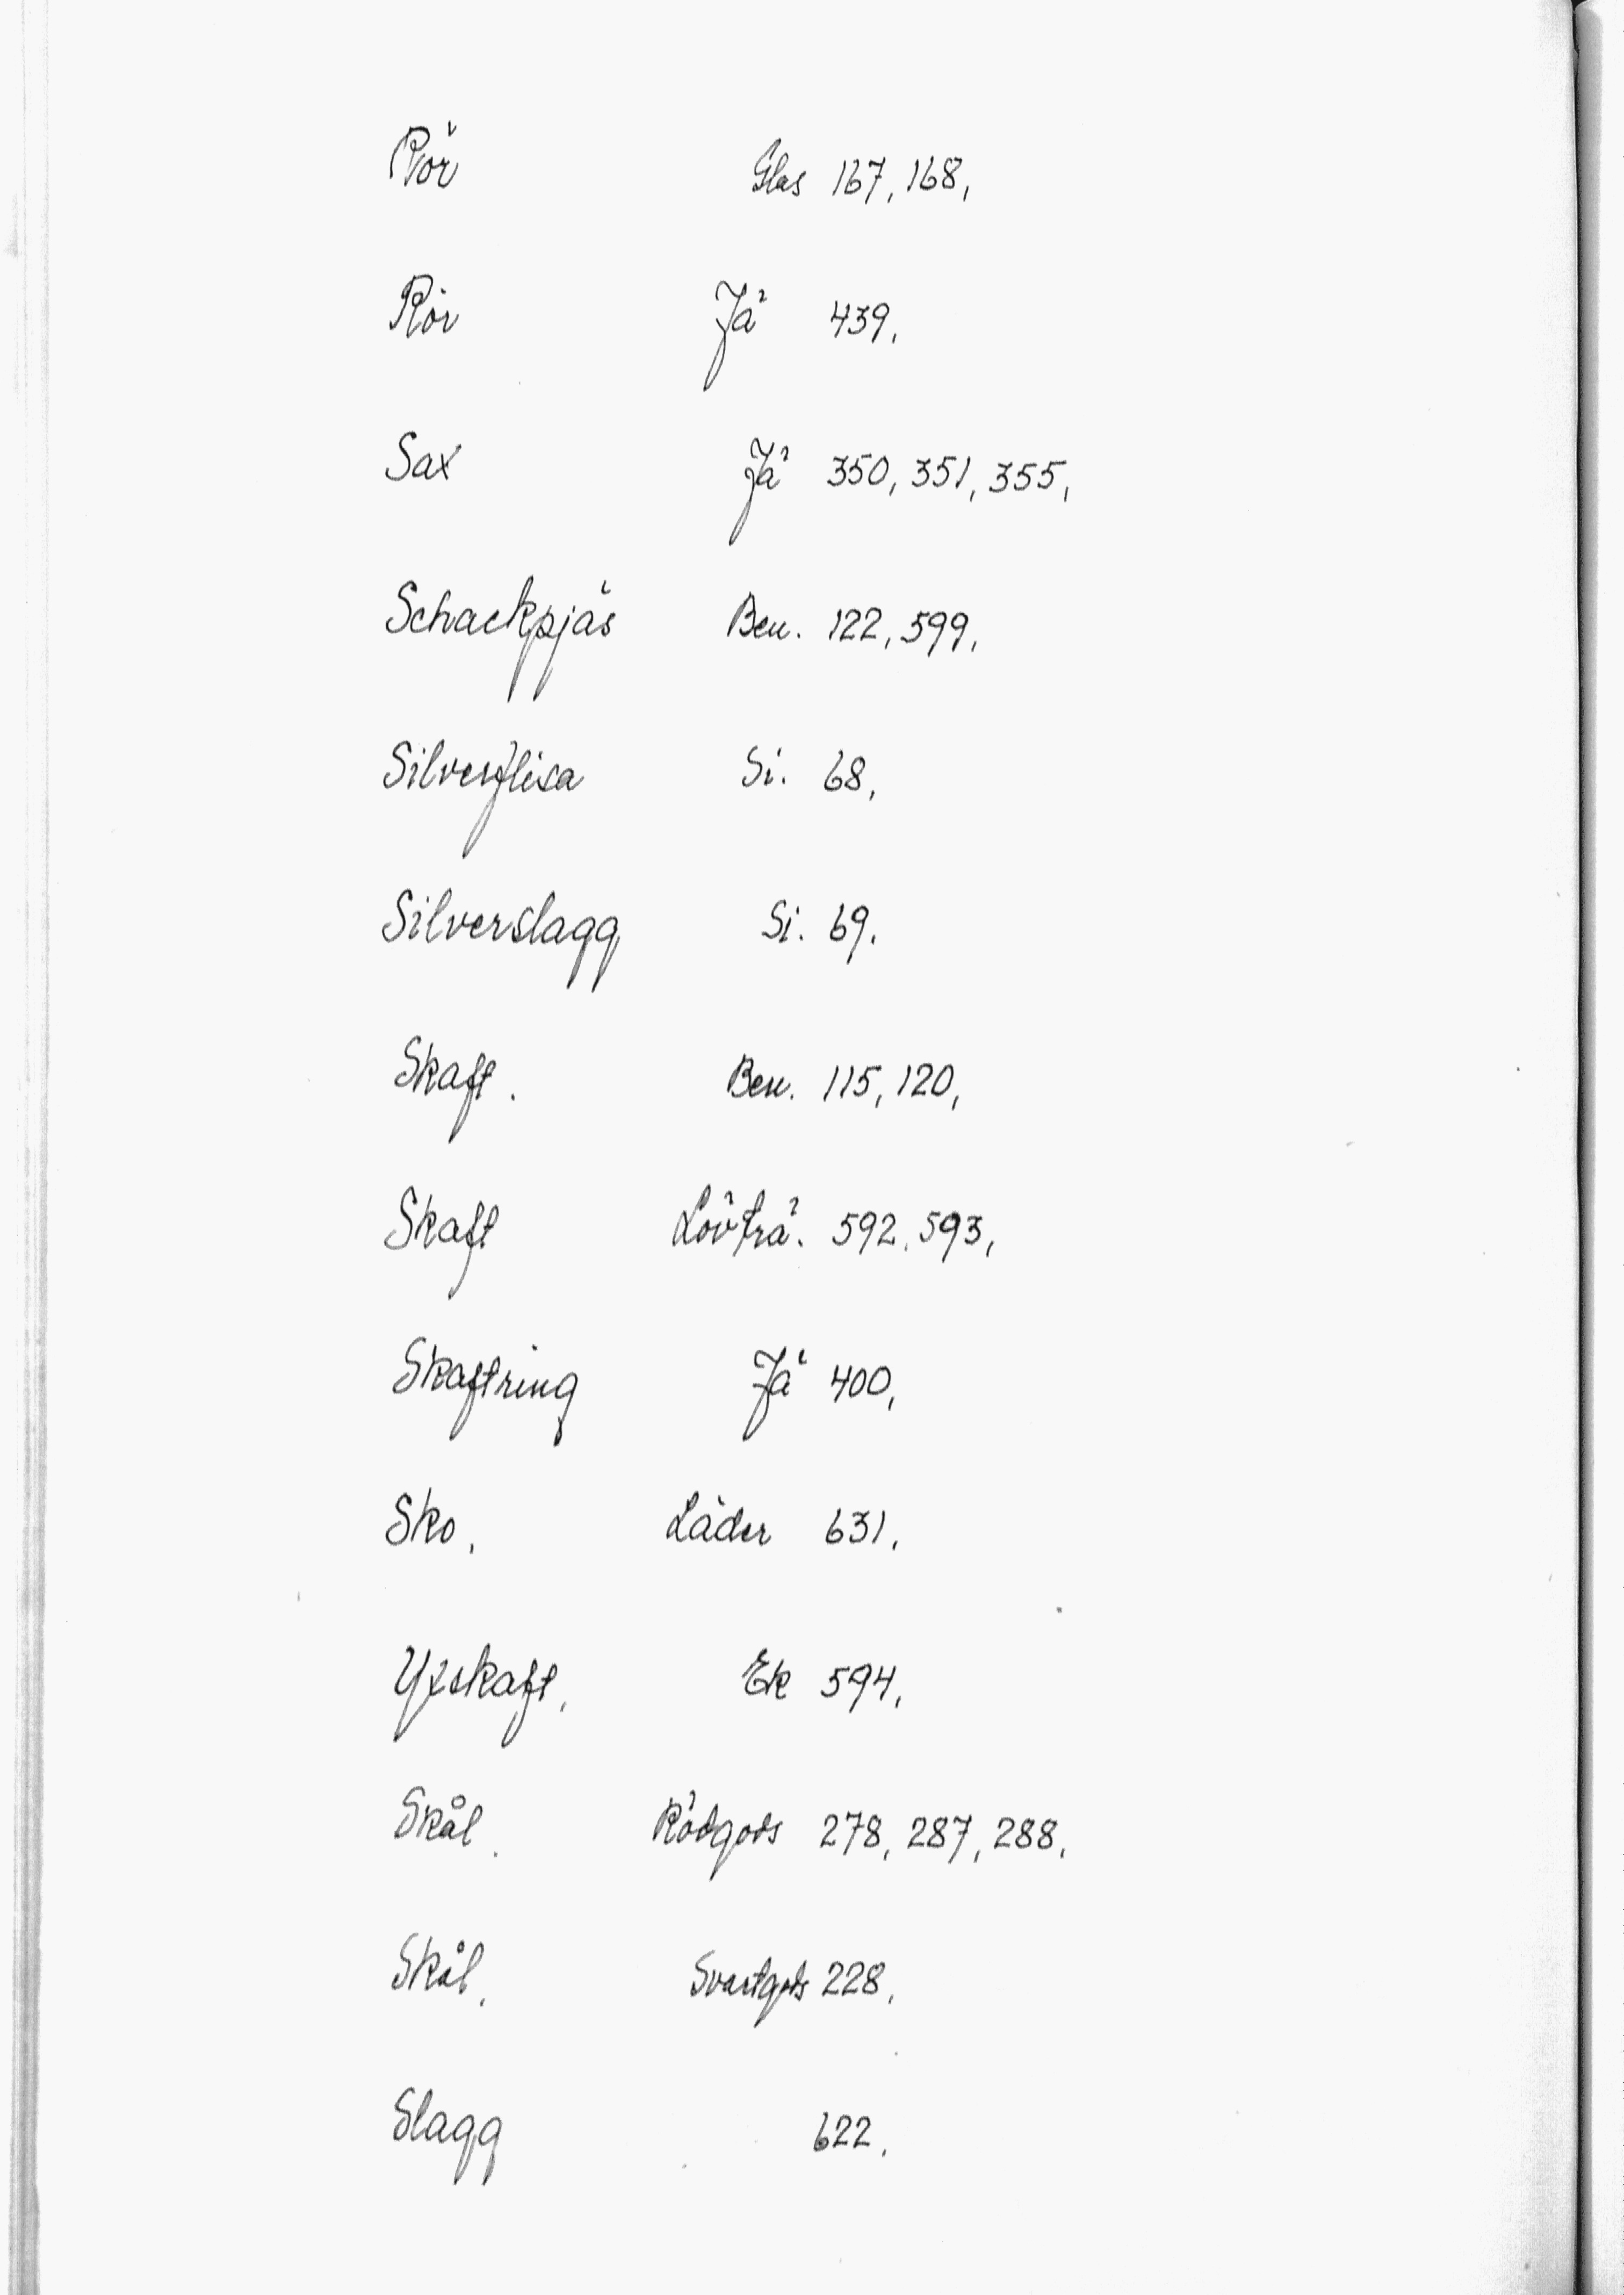 Rör Glas 167, 168,
Rör Jä 439,
Sax Jä 350, 351, 355,
Schackpjäs Ben. 122, 599,
Silverflisa Si. 68,
Silverslagg Si. 69.
Skaft. Ben. 115, 120,
Skaft Lövträ. 592, 593,
Skaftring Jä 400,
Sko, Läder 631,
Yxskaft, Ek 594,
Skål. Rödgods 278, 287, 288,
Skål, Svartgods 228,
Slagg 622,